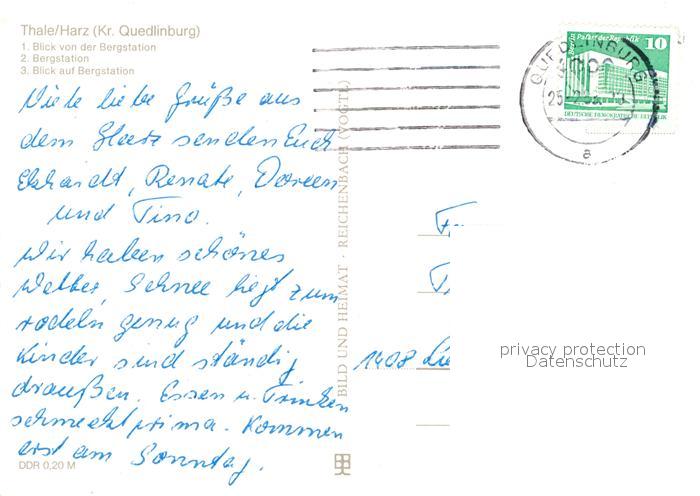 Thale/Harz (Kr. Quedlinburg)
1. Blick von der Bergstation
2. Bergstation
3. Blick auf Bergstation
Viele liebe Grüße aus
dem Harz senden Euch
Ekhardt, Renate, Doreen
und Tino.
Wir haben schönes
Wetter, Schnee liegt zum
rodeln genug und die
Kinder sind ständig
draußen. Essen u. Trinken
schmeckt prima. Kommen
erst am Sonntag.
DDR 0,20 M
BILD UND HEIMAT · REICHENBACH (VOGTL)
Palast der Republik 10
DEUTSCHE DEMOKRATISCHE REPUBLIK
QUEDLINBURG
a
1408 Lie
privacy protection
Datenschutz